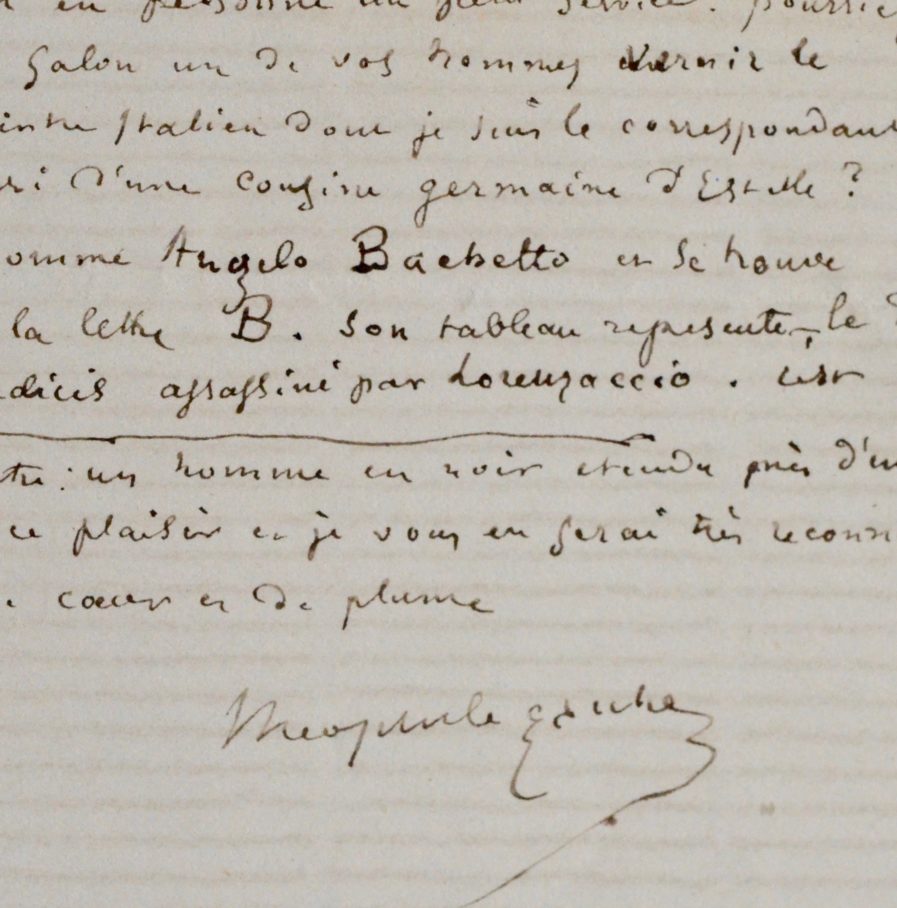 en personne un petit service. pourrie
Salon un de vos hommes vernir le
intre Italien dont je suis le correspondant
ri d'une cousine germaine d'Estelle ?
omme Angelo Bachetto et se trouve
la lettre B. son tableau represente le
dicis assassiné par Lorenzaccio. c'est
un homme en noir etendu près d'un
ce plaisir et je vous en serai très reconn
cœur et de plume
Theophile Gautier